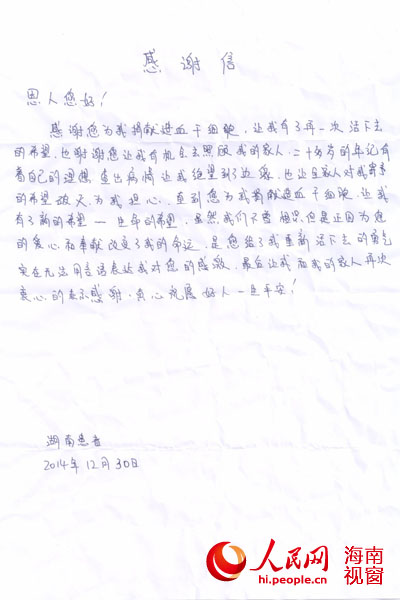 感谢信
恩人您好！
感谢您为我捐献造血干细胞，让我有了再一次活下去
的希望，也谢谢您让我有机会去照顾我的家人，二十多岁的年纪有
着自己的理想，查出病情让我绝望到了边缘，也让全家人对我寄予
的希望破灭，为我担心，直到您为我捐献造血干细胞，让我
有了新的希望一生命的希望，虽然我们不曾相识但是正因为您
的爱心和奉献改变了我的命运，是您给了我重新活下去的勇气
实在无法用言语表达我对您的感激，最后让我和我的家人再次
衷心的表示感谢，衷心祝愿好人一生平安！
湖南患者
2014年12月30日
人民网 海南
hi.people.cn 视窗